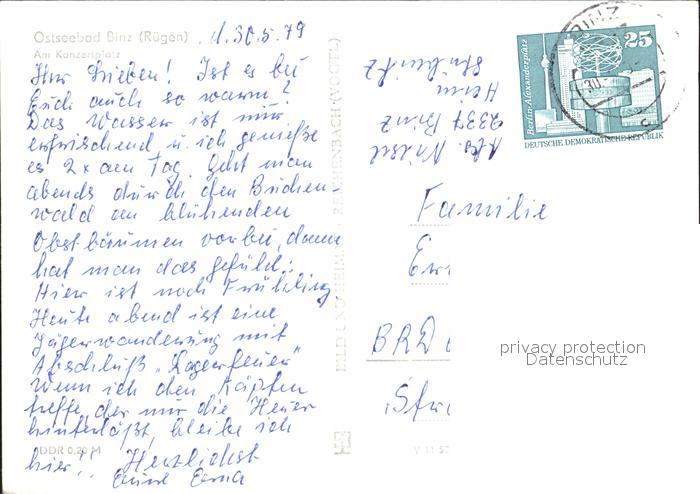 Ostseebad Binz (Rügen)
Am Konzertplatz
d. 30.5.79
Ihr Lieben! Ist es bei
Euch auch so warm?
Das Wasser ist nur
erfrischend u. ich genieße
es 2x am Tag. Geht man
abends durch den Buchen-
wald an blühenden
Obstbäumen vorbei, dann
hat man das gefühl:
Hier ist noch Frühling
Heute abend ist eine
Jägerwanderung mit
Abschluß "Lagerfeuer"
Wenn ich den Käpten
treffe, der mir die Heuer
hinterläßt, bleibe ich
hier!! Herzlichst
Eure Erna
DDR 0,20 M
REICHENBACH (VOGTL)
Abs.
2337 Binz
Heim
BINZ
30.
25
Berlin-Alexanderplatz
DEUTSCHE DEMOKRATISCHE REPUBLIK
Familie
BRD
V 11 50
privacy protection
Datenschutz